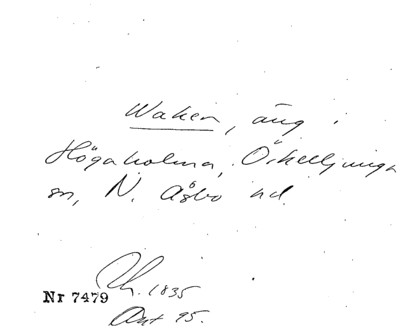 Waken, äng i
Högaholma, Örkelljunga
sn, N. Åsbo hd.
Nr 7479
Lh. 1835
Akt 95.